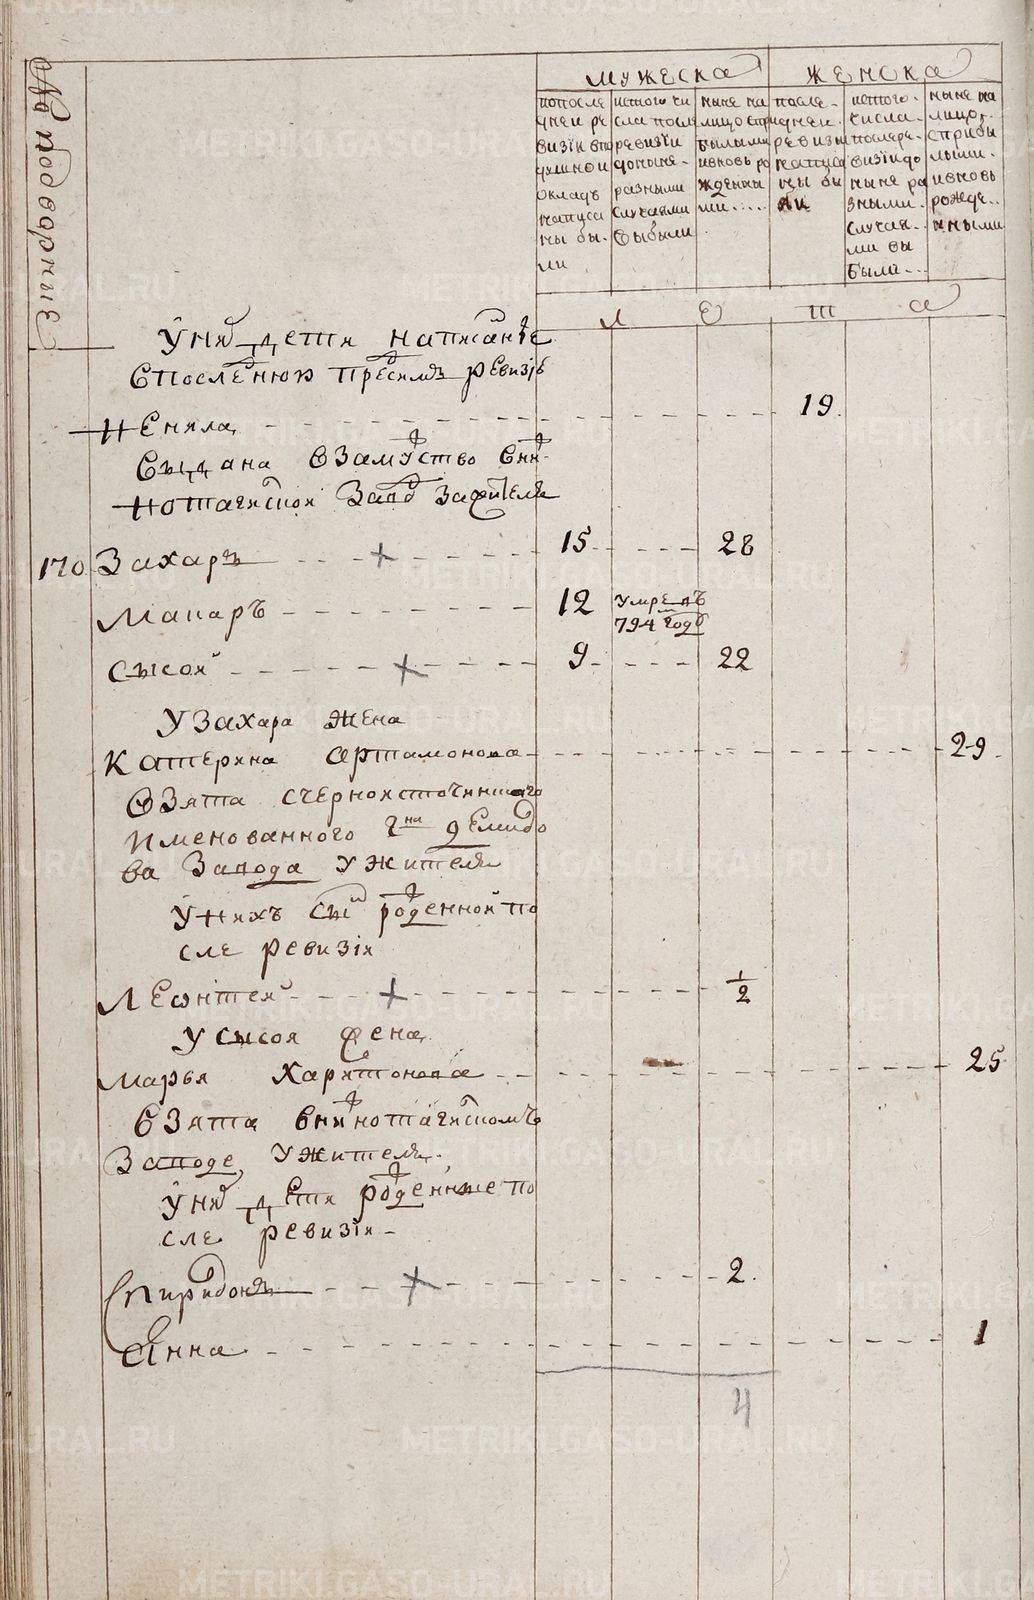 № подворний
мужеска
женска
попосле
дней ре
визїи впо
душной
окладъ
написа
ны бы-
ли
истого чи
сла после
ревизїи
доныне-
разными
случаями
выбыли
ныне на
лицо спри
былыми
ивновь ро
жденны
ми.....
после-
дней.
ревизїи
написа
ны бы
ли
истого.
числа.
послере-
визїидо
ныне ра
зными.
случая-
ми вы
была...
ныне на
лицо,
сприбы
лыми.
ивновь
рожде..
нными
л е т а
У них дети написание
впоследнюю пред сим ревизїю
Ненила 19.
выдана взамужство вни-
нотагилской завод зажителя
170 Захаръ + 15 28
Макаръ 12 умрелъ
794 году
Сысой + 9 22
у захара жена
Катерина артамонова 29.
взята счерноисточинского
именованного г на демидо
ва завода у жителя
у нихъ сын рожденной по
сле ревизїи
Леонтей + 1/2
у сысоя жена
Марья Харитонова 25
взята внинотагилскомъ
заводе, ужителя.
у них дети рожденные по
сле ревизїи -
Спиридонъ + 2.
Анна 1
4
METRIKI.GASO-URAL.RU